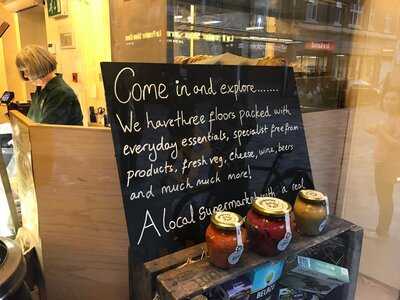 Come in and explore.......
We have three floors packed with
everyday essentials, specialist free from
products, fresh veg, cheese, wine, beers
and much much more!
A local supermarket with a real